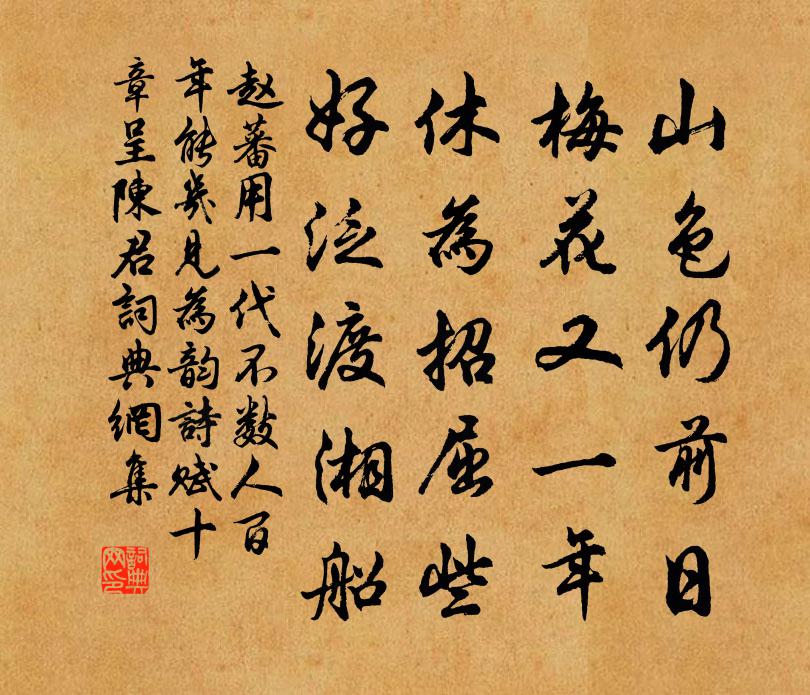 山色仍前日
梅花又一年
休為招屈些
好泛渡湘船
赵蕃用一代不数人百
年能幾見為韵詩赋十
章呈陳君詞典網集
詞典網印